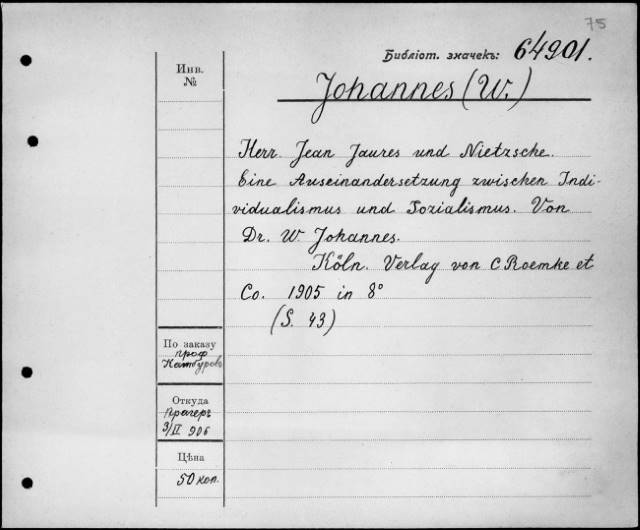 75
Библіот. значекъ: 64901.
Инв.
№
Johannes (W.)
Herr Jean Jaures und Nietzsche.
Eine Auseinandersetzung zwischen Indi-
vidualismus und Sozialismus. Von
Dr. W. Johannes.
Köln. Verlag von C Roemke et
Co. 1905 in 8°
(S. 43)
По заказу
проф
Откуда
Прагеръ
3/II 906
Цѣна
50 коп.